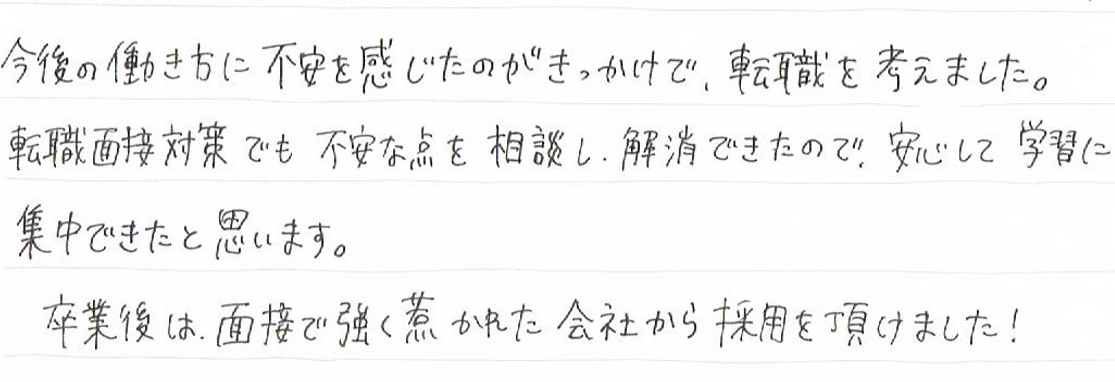 今後の働き方に不安を感じたのがきっかけで、転職を考えました。
転職面接対策でも不安な点を相談し、解消できたので、安心して学習に
集中できたと思います。
卒業後は、面接で強く惹かれた会社から採用を頂けました!